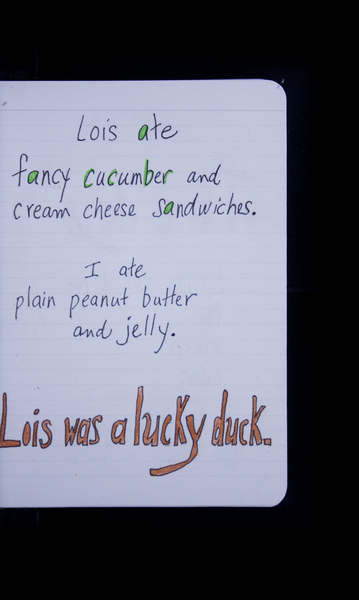 Lois ate
fancy cucumber and
cream cheese sandwiches.
I ate
plain peanut butter
and jelly.
Lois was a lucky duck.